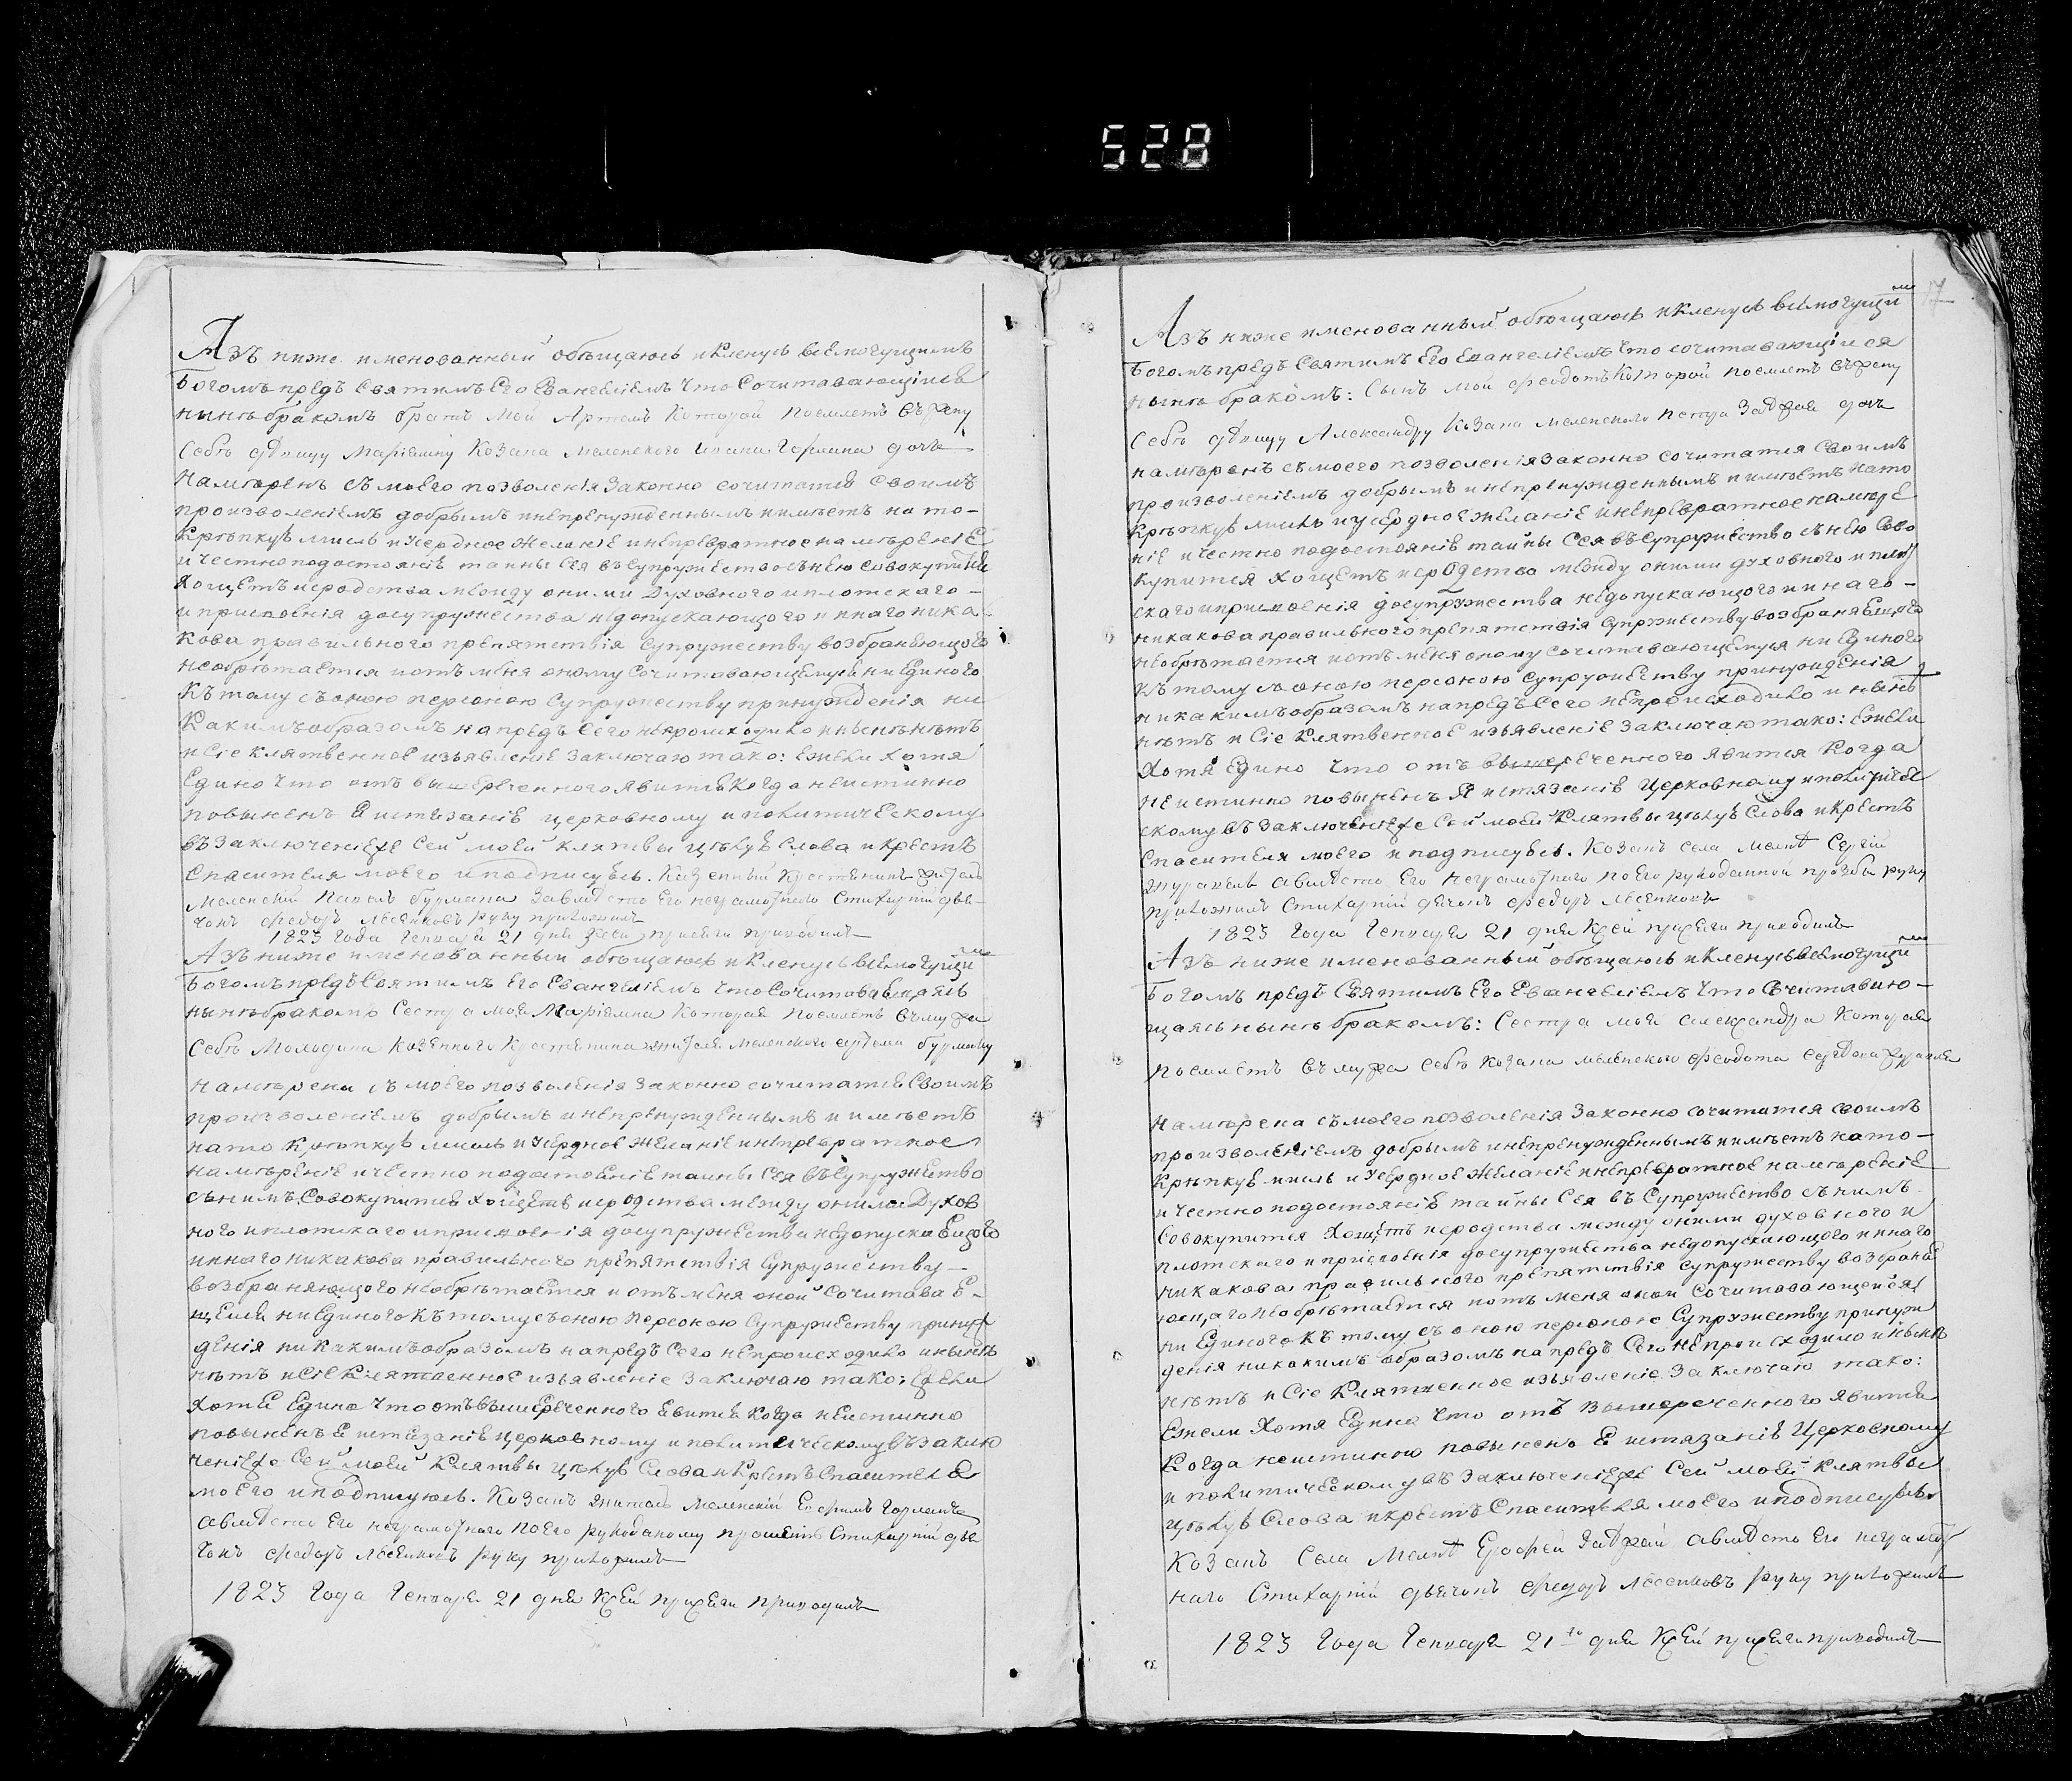 528
Азъ ниже именованный обѣщаюсь и кленусь всемогущимъ
Богомъ предъ святимъ Его Евангелiемъ что сочитавающiися
нынѣ бракомъ братъ мой Артемъ которой поемлетъ въ жену
себѣ девицу Марiямну козака меленского дочь
намѣренъ съ моего позволенiя законно сочитатися своимъ
произволенiемъ добрымъ и непренужденнымъ и имѣетъ на то-
крѣпкую мисль и усердное желанiе и непревратное намѣренiе
и честно по достоянiю тайны сея въ супружество съ нею совокупитися
хощетъ и сродства между оними духовного и плотскаго-
и присвоенiя до супружества недопускающого и инаго ника-
кова правильного препятствiя супружеству возбраняющого
необрѣтается и отъ меня оному сочитавающемуся ни единого
къ тому съ оною персоною супружеству принужденiя ни
какимъ образомъ напредъ сего непроисходило и нынѣ нѣтъ
и сiе клятвенное изъявленiе заключаю тако: ежели хотя
едино что отъ вышереченного явится когда неистинно
повыненъ я истязанiю церковному и политическому
въ заключенiе же сей моей клятвы цѣлую слова и крестъ
Спасителя моего и подписуюсь. Казенный крестянинъ житель
меленскiй Павелъ бурмака за его неграмотного стихарнiй дья-
чокъ федоръ руку приложилъ
1823 года Генваря 21 дня къ сей присяги приводилъ
Азъ ниже именованный обѣщаюсь и кленусь всемогущи
мъ
Богомъ предъ святимъ его Евангелiемъ что сочитаваю щаясь
нынѣ бракомъ сестра моя Марiямна которая поемлетъ въ мужа
себѣ молодика казенного крестянина жителя меленского артема бурмаку
намѣрена съ моего позволенiя законно сочитатися своимъ
произволенiемъ добрымъ и непренужденнымъ и имѣетъ
на то крѣпкую мисль и усердное желанiе и непревратное
намѣренiе и честно по достоянiю тайны сея въ супружество
съ нимъ совокупится хощетъ и сродства между оними духов
ного и плотскаго и присвоенiя до супружества недопускающого
и инаго никакова правильного препятствiя супружеству-
возбраняющого необрѣтается и отъ меня оной сочитаваю-
щейся ни единого къ тому съ оною персоною супружеству прину
денiя никакимъ образомъ напредъ сего непроисходило и нынѣ
нѣтъ и сiе клятвенное изъявленiе заключаю тако: ежели
хотя едино что отъ вышереченного явится когда неистинно
повыненъ я истязанiю церковному и политическому въ заклю
ченiе же сей моей клятвы цѣлую слова и крестъ Спасителя
моего и подписуюсь. Козакъ житель меленскiй
его неграмотного по его рукоданому прошенiю стихарнiй дья
чокъ федоръ руку приложилъ
1823 года Генваря 21 дня къ сей присяги приводилъ
17
Азъ ниже именованный обѣщаюсь и кленусь всемогущи
мъ
Богомъ предъ святимъ его Евангелiемъ что сочитавающiися
нынѣ бракомъ: сынъ мой феодотъ которой поемлетъ въ жену
себѣ девицу Александру козака меленского петра дочь
намѣренъ съ моего позволенiя законно сочитатися своимъ
произволенiемъ добрымъ и непренужденнымъ и имѣетъ на то
крѣпкую мисль и усердное желанiе и непревратное намѣре
нiе и честно по достоянiю тайны сея въ супружество съ нею сово
купится хощетъ и сродства между оними духовного и плот
скаго и присвоенiя до супружества недопускающого и инаго-
никакова правильного препятствiя супружеству возбраняющого
необрѣтается и отъ меня оному сочитавающемуся ни единого
къ тому съ оною персоною супружеству принужденiя
никакимъ образомъ напредъ сего непроисходило и нынѣ
нѣтъ и сiе клятвенное изъявленiе заключаю тако: ежели
хотя едино что отъ вышереченного явится когда
неистинно повыненъ я истязанiю церковному и политиче
скому въ заключенiе же сей моей клятвы цѣлую слова и крестъ
Спасителя моего и подписуюсь. Козакъ села Сергiй
журавель его неграмотного по его рукоданной прозбы руку
приложилъ стихарнiй дячокъ федоръ
1823 года Генваря 21 дня къ сей присяги приводилъ
Азъ ниже именованный обѣщаюсь и кленусь всемогущи
мъ
Богомъ предъ святимъ его Евангелiемъ что сочитаваю-
щаясь нынѣ бракомъ: сестра моя александра которая
поемлетъ въ мужа себѣ козака меленского феодота журавля
намѣрена съ моего позволенiя законно сочитатися своимъ
произволенiемъ добрымъ и непренужденнымъ и имѣетъ на то-
крѣпкую мисль и усердное желанiе и непревратное намѣренiе
и честно по достоянiю тайны сея въ супружество съ нимъ
совокупится хощетъ и сродства между оними духовного и
плотскаго и присвоенiя до супружества недопускающого и инаго
никакова правильного препятствiя супружеству возбраня
ющаго необрѣтается и отъ меня оной сочитавающейся
ни единого къ тому съ оною персоною супружеству принуж
денiя никакимъ образомъ напредъ сего непроисходило и нынѣ
нѣтъ и сiе клятвенное изъявленiе заключаю тако:
ежели хотя едино что отъ вышереченного явится
когда неистинно повыненъ я истязанiю церковному
и политическому въ заключенiе же сей моей клятвы
цѣлую слова и крестъ Спасителя моего и подписуюсь
козакъ села его неграмот
наго стихарнiй дьячокъ федоръ руку приложилъ
1823 года Генваря 21 го дня къ сей присяги приводилъ